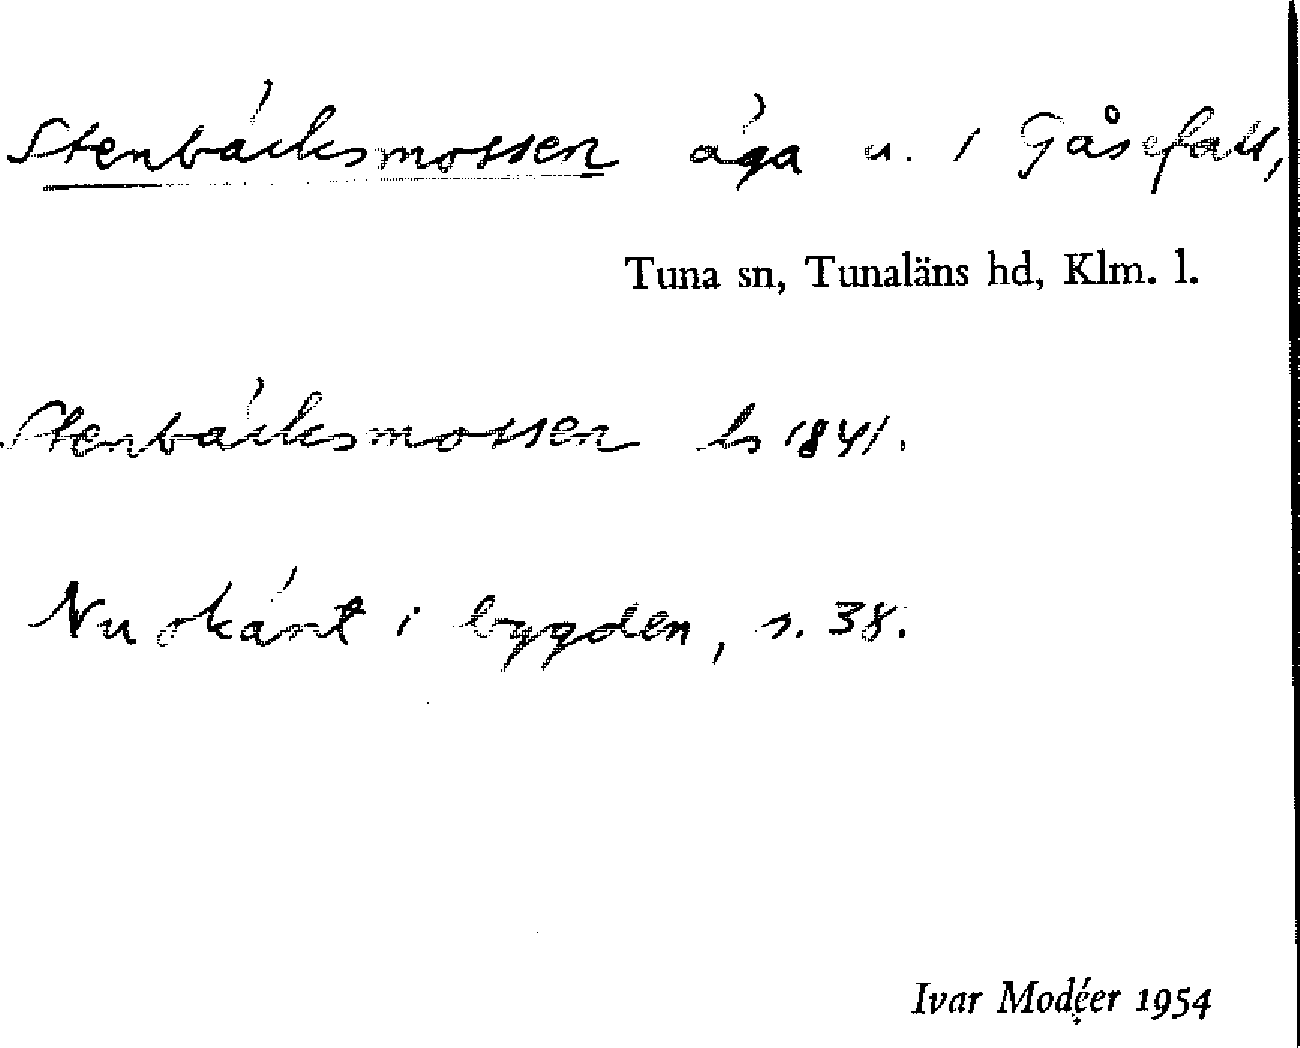 Stenbäcksmossen äga u. 1 Gåsefall,
Tuna sn, Tunaläns hd, Klm. l.
Stenbäcksmossen ls 1841.
Nu okänt i bygden, s. 38.
Ivar Modéer 1954